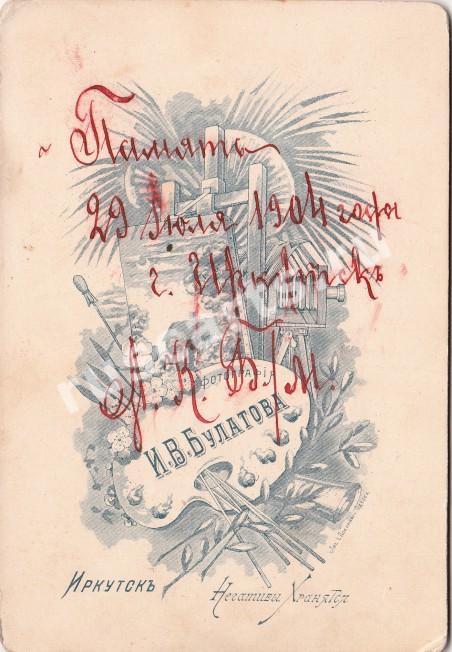 Память
29 Июля 1904 года
г. Иркутскъ
К. Б/М.
ФОТОГРАФІЯ
И.В.БУЛАТОВА
Иркутскъ
Негативы Хранятся